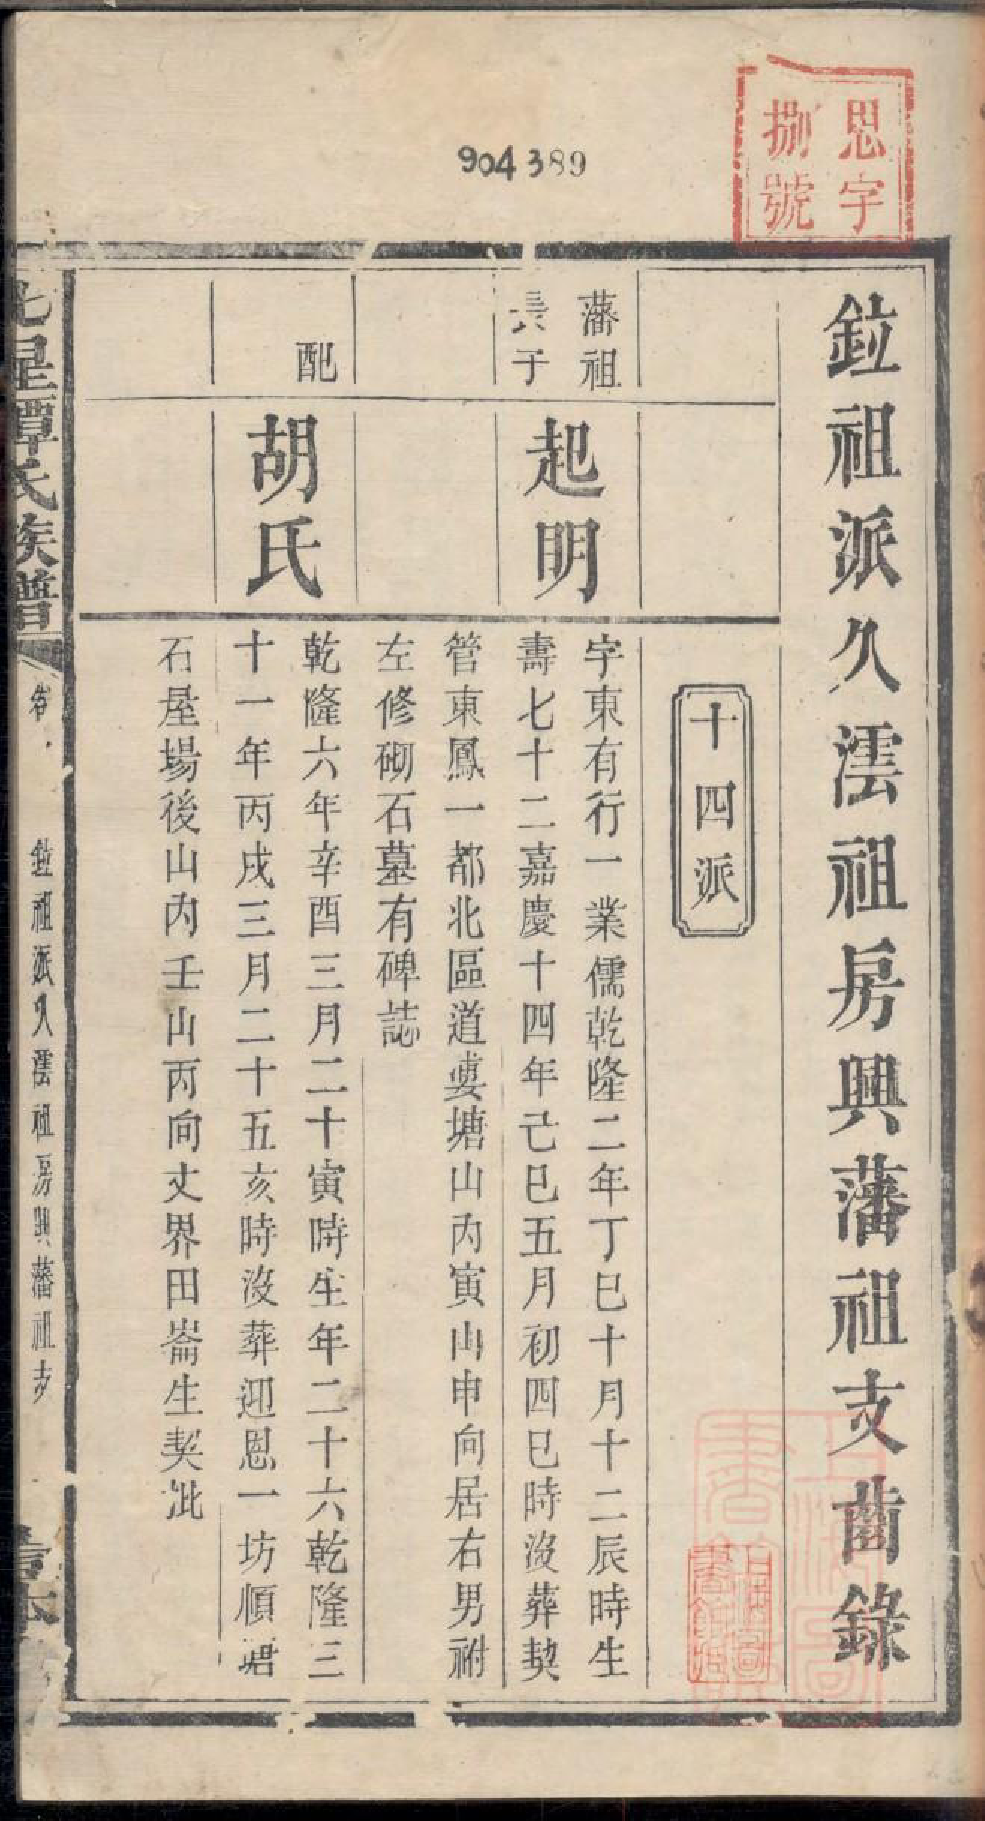 思字
捌號
904389
鉝祖派久澐祖房興藩祖支齒錄
十四派
藩祖
長子
起明
字東有行一業儒乾隆二年丁巳十月十二辰時生
壽七十二嘉慶十四年己巳五月初四巳時沒葬契
管東鳳一都北區道婁塘山內寅山申向居右男祔
左修砌石墓有碑誌
配
胡氏
乾隆六年辛酉三月二十寅時生年二十六乾隆三
十一年丙戌三月二十五亥時沒葬迎恩一坊順
石屋場後山內壬山丙向丈界田崙生契
星譚氏族譜
卷
鉝祖派久澐祖房興藩祖支